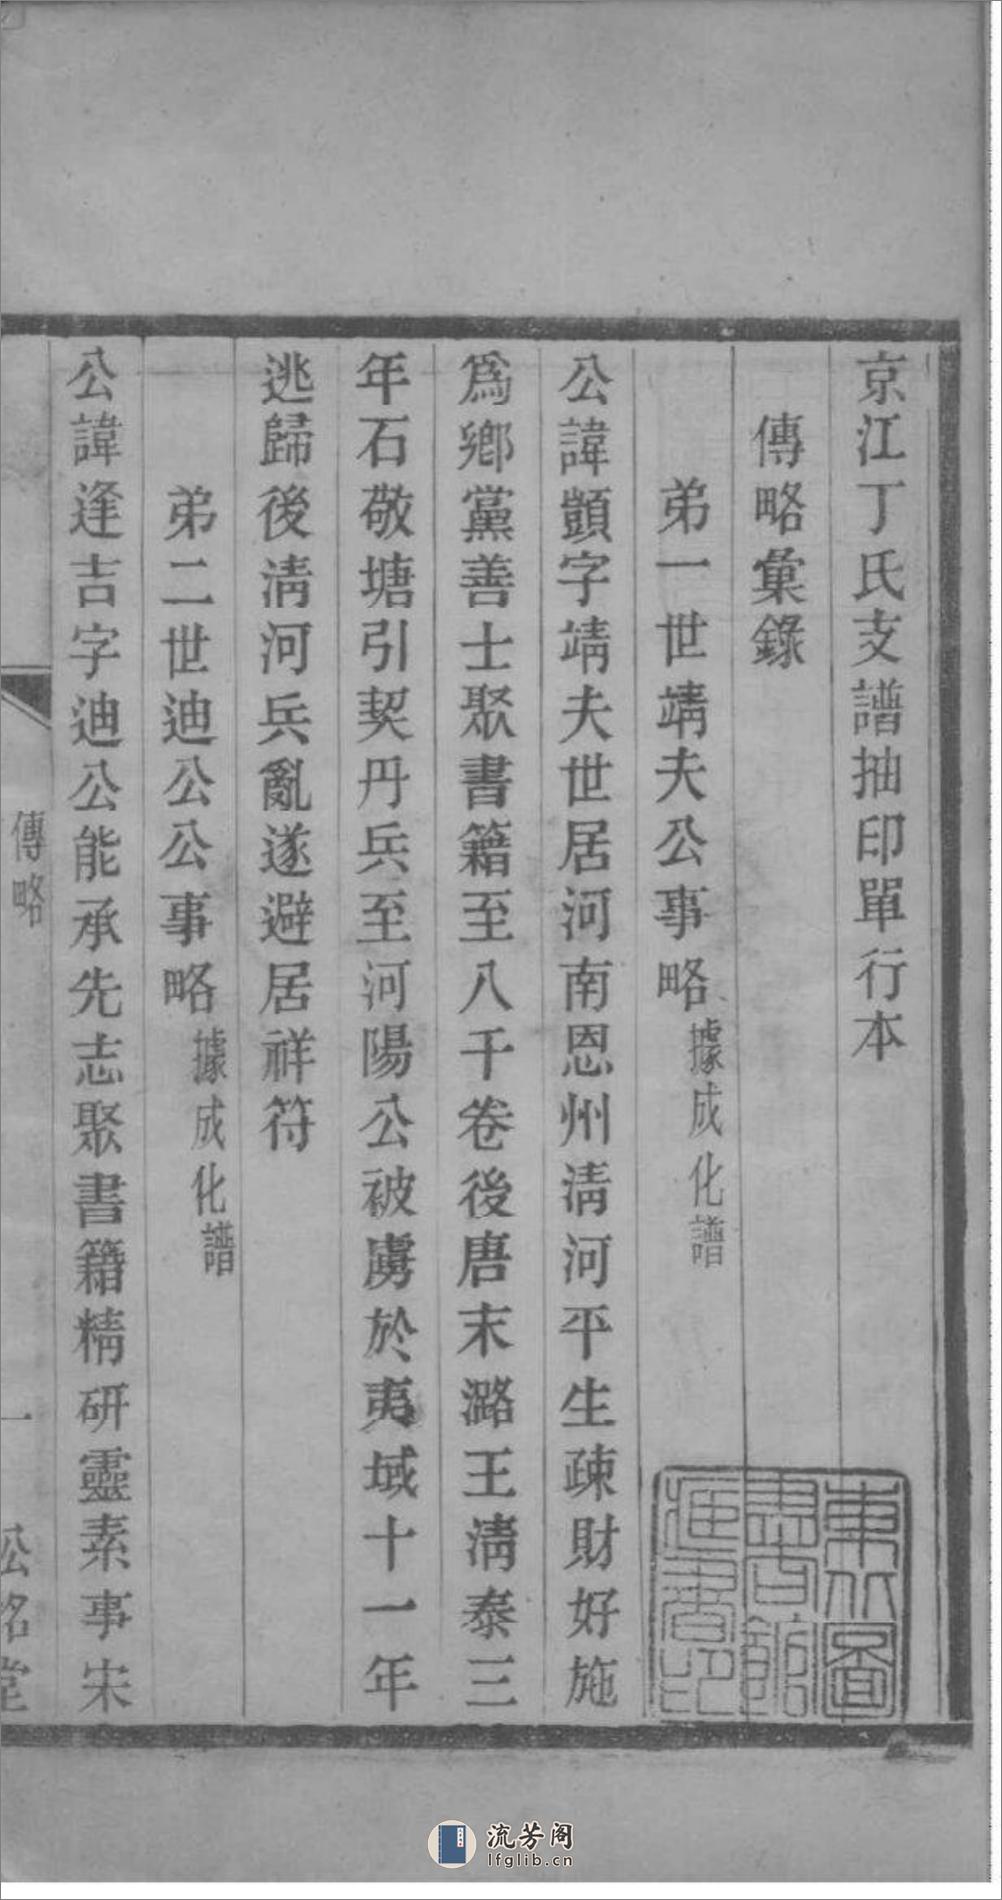 京江丁氏支譜抽印單行本
傳略彙錄
弟一世靖夫公事略據成化譜
公諱顗字靖夫世居河南恩州清河平生疎財好施
爲鄉黨善士聚書籍至八千卷後唐末潞王清泰三
年石敬塘引契丹兵至河陽公被虜於夷域十一年
逃歸後清河兵亂遂避居祥符
弟二世迪公公事略據成化譜
公諱逢吉字迪公能承先志聚書籍精研靈素事宋
傳略
一
松銘堂
東北圖書館所藏書印
流芳阁
lfglib.cn